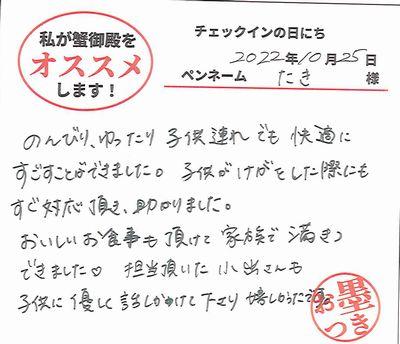 私が蟹御殿を
オススメ
します！
チェックインの日にち
2022年10月25日
ペンネーム たき 様
のんびり、ゆったり 子供連れでも 快適に
すごすことができました。子供がけがをした際にも
すぐ対応頂き、助かりました。
おいしいお食事も頂けて 家族で 満きつ
できました♡ 担当頂いた 小出さんも
子供に優しく話しかけて下さり 嬉しかったです。
お墨つき